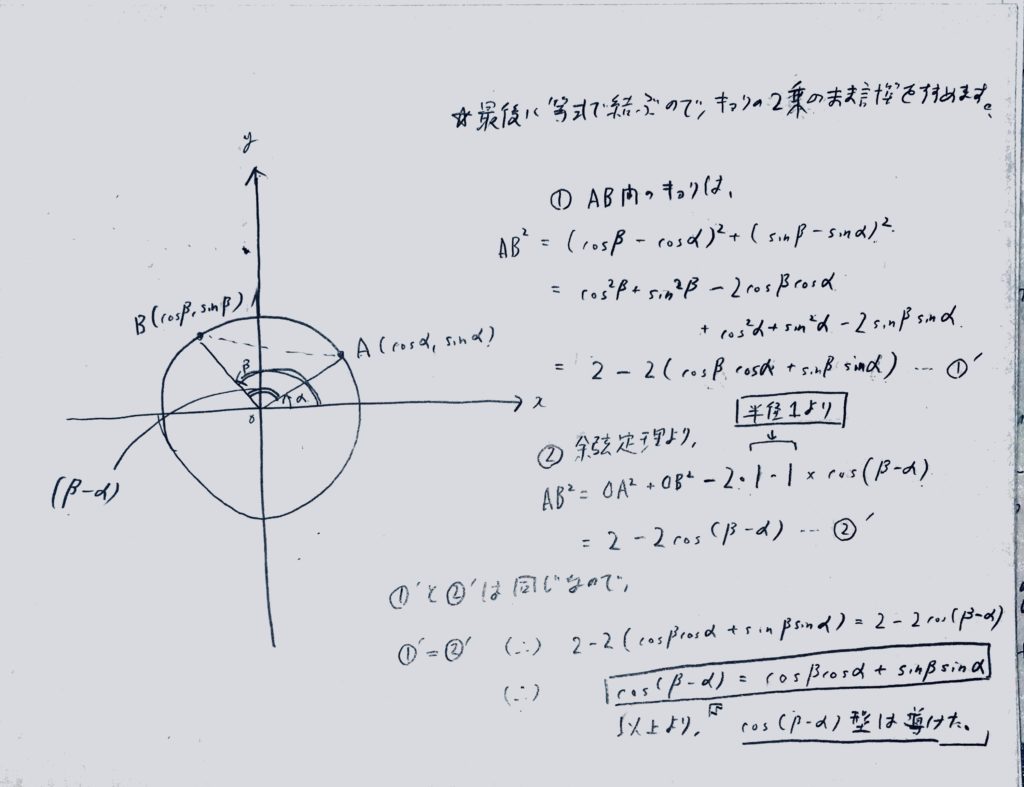 ☆最後に等式で結ぶので,キョリの2乗のまま計算をすすめます。
y
① AB間のキョリは,
AB² = (cosβ - cosα)² + (sinβ - sinα)²
B(cosβ, sinβ)
= cos²β + sin²β - 2cosβcosα
+ cos²α + sin²α - 2sinβsinα
A(cosα, sinα)
= 2 - 2(cosβ cosα + sinβ sinα) … ①′
β
α
x
0
半径1より
② 余弦定理より,
(β-α)
AB² = OA² + OB² - 2・1・1 × cos(β-α)
= 2 - 2cos(β-α) … ②′
①′と②′は同じなので,
①′=②′ (∴) 2-2(cosβcosα + sinβsinα) = 2-2cos(β-α)
(∴) cos(β-α) = cosβcosα + sinβsinα
以上より, cos(β-α)型は導けた。